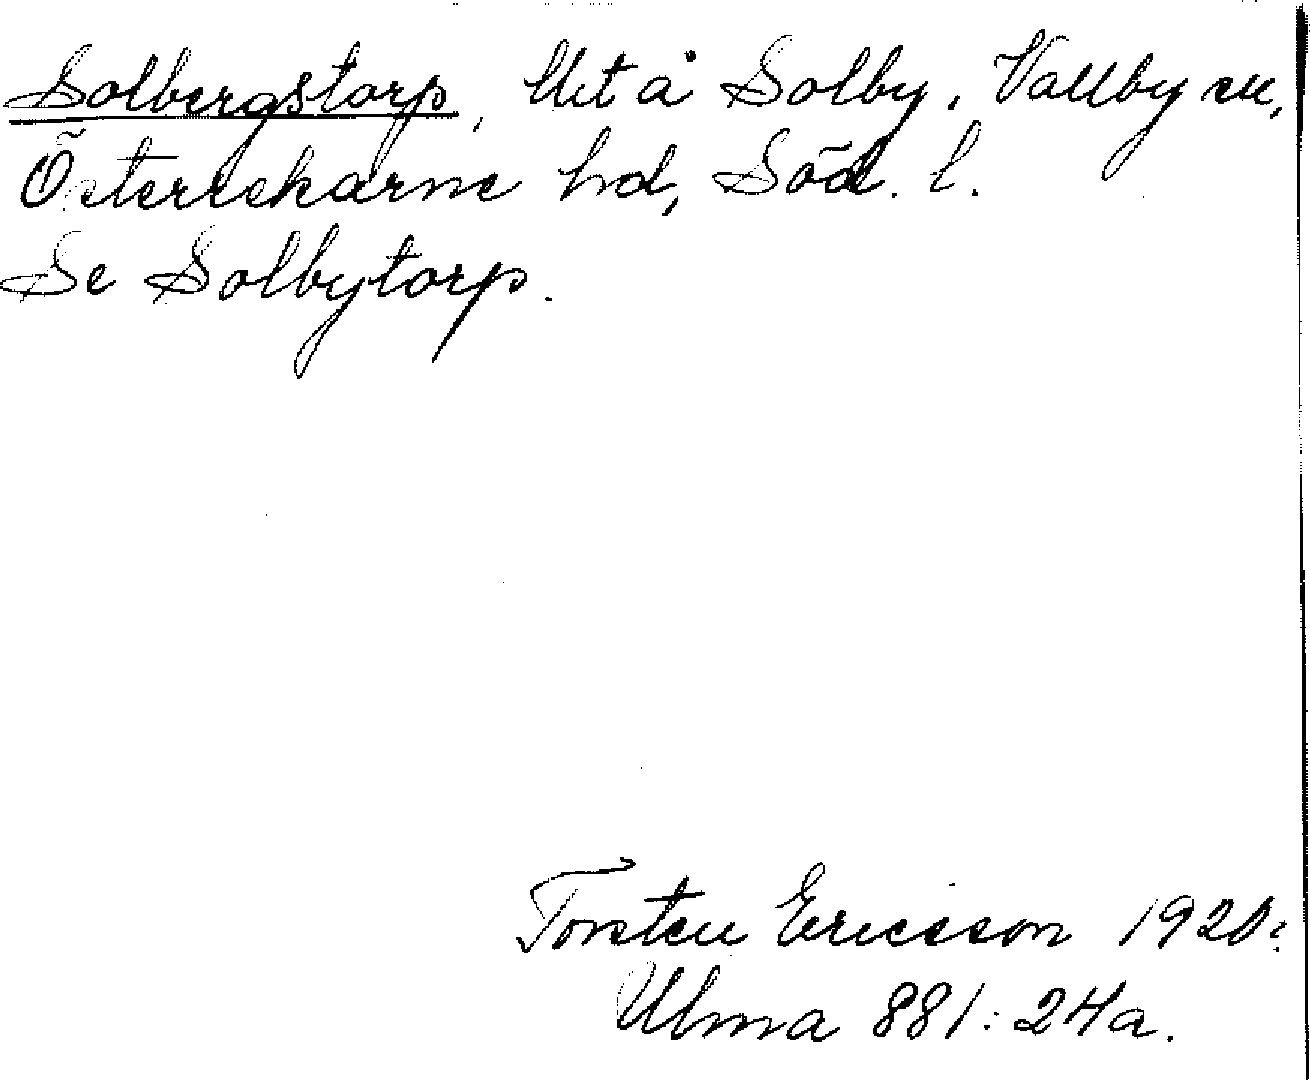 Solbergstorp, Utå Solby, Vallby sn,
Österrekarne hd, Söd. l.
Se Solbytorp.
Torsten Ericsson 1920:
Ulma 881:24a.